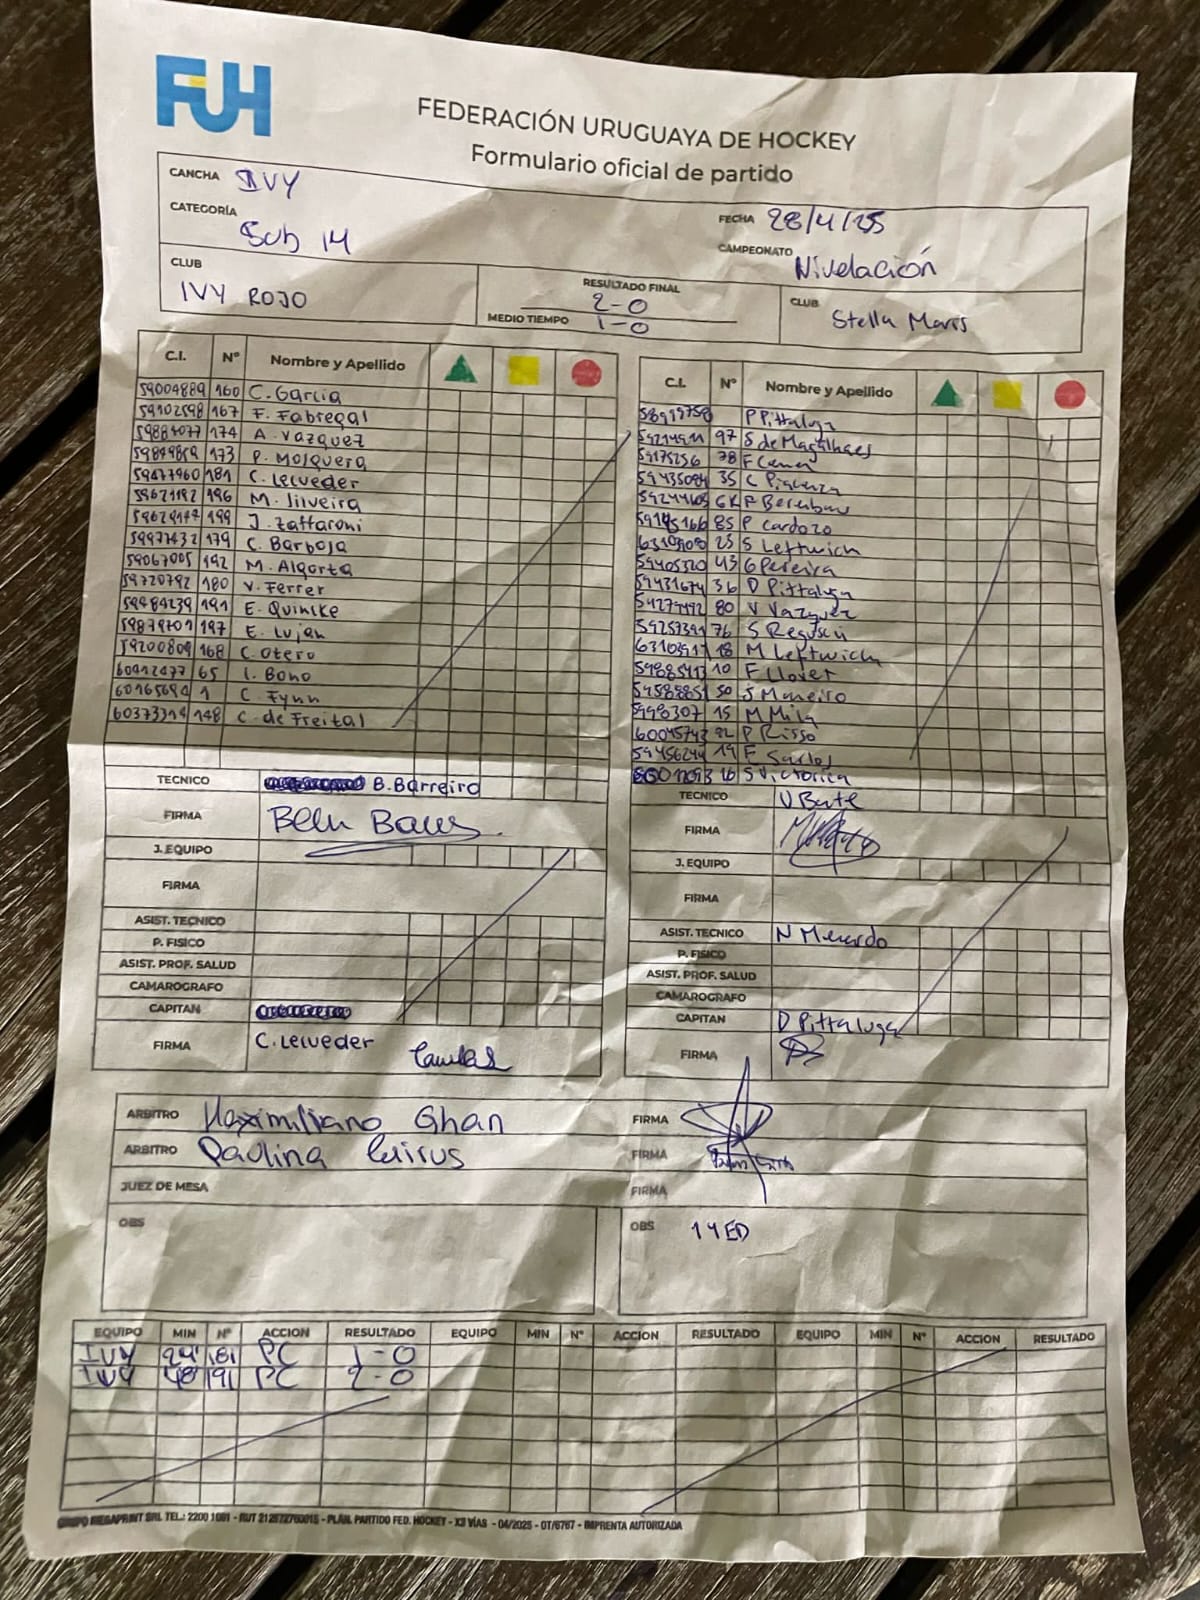 FUH
FEDERACIÓN URUGUAYA DE HOCKEY
Formulario oficial de partido
CANCHA IVY
FECHA 28/4/25
CATEGORÍA Sub 14
CAMPEONATO Nivelación
CLUB IVY ROJO
RESULTADO FINAL 2-0
MEDIO TIEMPO 1-0
CLUB Stella Maris
C.I. Nº Nombre y Apellido
59004889 160 C. Garcia
59102598 167 F. Fabregal
59884077 174 A. Vazquez
59849859 173 P. Mosquera
59477960 181 C. Lecueder
59621192 196 M. Silveira
199 J. Zaffaroni
59977432 179 C. Barboja
59067005 192 M. Algorta
59720792 180 V. Ferrer
59984239 191 E. Quincke
59879701 197 E. Lujan
59200809 168 C. Otero
60412477 65 I. Bono
60165694 1 C. Fynn
60373314 148 C. de Freital
TECNICO B. Barreiro
FIRMA
J. EQUIPO
FIRMA
ASIST. TECNICO
P. FISICO
ASIST. PROF. SALUD
CAMAROGRAFO
CAPITAN
FIRMA C. Lecueder
C.I. Nº Nombre y Apellido
P Pittaluga
97 S de Magalhaes
59175256 78 F
35 C
GK F
85 P Cardozo
25 S Leftwich
59405320 43 G Pereira
59431674 36 D Pittaluga
80 V Vazquez
59257391 76 S
63103917 18 M Leftwich
59885413 10 F Llovet
50 S Maneiro
5998307 15 M Mila
60045743 P Risso
59456244 19 F
16 S Victorica
TECNICO
FIRMA
J. EQUIPO
FIRMA
ASIST. TECNICO N
P. FISICO
ASIST. PROF. SALUD
CAMAROGRAFO
CAPITAN D Pittaluga
FIRMA
ARBITRO Maximiliano Ghan FIRMA
ARBITRO Paulina FIRMA
JUEZ DE MESA FIRMA
OBS
OBS 14ED
EQUIPO MIN Nº ACCION RESULTADO EQUIPO MIN Nº ACCION RESULTADO EQUIPO MIN Nº ACCION RESULTADO
IVY 24' 181 PC 1-0
IVY 48' 191 PC 2-0
GRUPO MEGAPRINT SRL TEL.: 2200 1001 - RUT 212572760015 - PLAN. PARTIDO FED. HOCKEY - X3 VÍAS - 04/2025 - OT/6767 - IMPRENTA AUTORIZADA